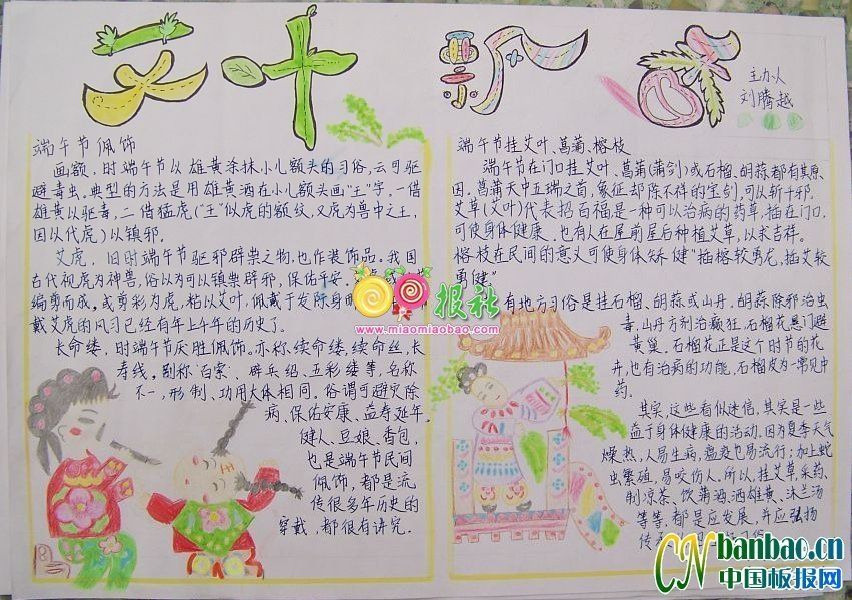 艾叶飘香
主办人
刘腾越
端午节佩饰
画额，时端午节以雄黄涂抹小儿额头的习俗，云可驱
避毒虫。典型的方法是用雄黄酒在小儿额头画“王”字，一借
雄黄以驱毒，二借猛虎（“王”似虎的额纹，又虎为兽中之王，
因以代虎）以镇邪。
艾虎，旧时端午节驱邪辟祟之物，也作装饰品。我国
古代视虎为神兽，俗以为可以镇祟辟邪、保佑平安。
编剪而成，或剪彩为虎，粘以艾叶，佩戴于发际身
戴艾虎的风习已经有年上千年的历史了。
长命缕，时端午节厌胜佩饰。亦称续命缕，续命丝，长
寿线，别称“百索”、辟兵绍、五彩缕等，名称
不一，形制、功用大体相同。俗谓可避灾除
病、保佑安康、益寿延年。
健人、豆娘、香包，
也是端午节民间
佩饰，都是流
传很多年历史的
穿戴，都很有讲究。
端午节挂艾叶、菖蒲、榕枝
端午节在门口挂艾叶、菖蒲（蒲剑）或石榴、胡蒜都有其原
因。菖蒲天中五瑞之首，象征却除不祥的宝剑，可以斩千邪。
艾草（艾叶）代表招百福是一种可以治病的药草，插在门口，
可使身体健康。也有人在屋前屋后种植艾草，以求吉祥。
榕枝在民间的意义可使身体矫健“插榕较勇龙，插艾较
勇健”
有地方习俗是挂石榴、胡蒜或山丹，胡蒜除邪治虫
毒，山丹方剂治癫狂。石榴花悬门避
黄巢。石榴花正是这个时节的花
卉，也有治病的功能，石榴皮为一常见中
药。
其实，这些看似迷信，其实是一些
益于身体健康的活动，因为夏季天气
燥热，人易生病，瘟疫也易流行；加上蛇
虫繁殖，易咬伤人，所以，挂艾草，采药、
制凉茶、饮蒲酒、洒雄黄、沐兰汤
等等，都是应发展，并应弘扬
传
报社
www.miaomiaobao.com
CN banbao.cn
中国板报网